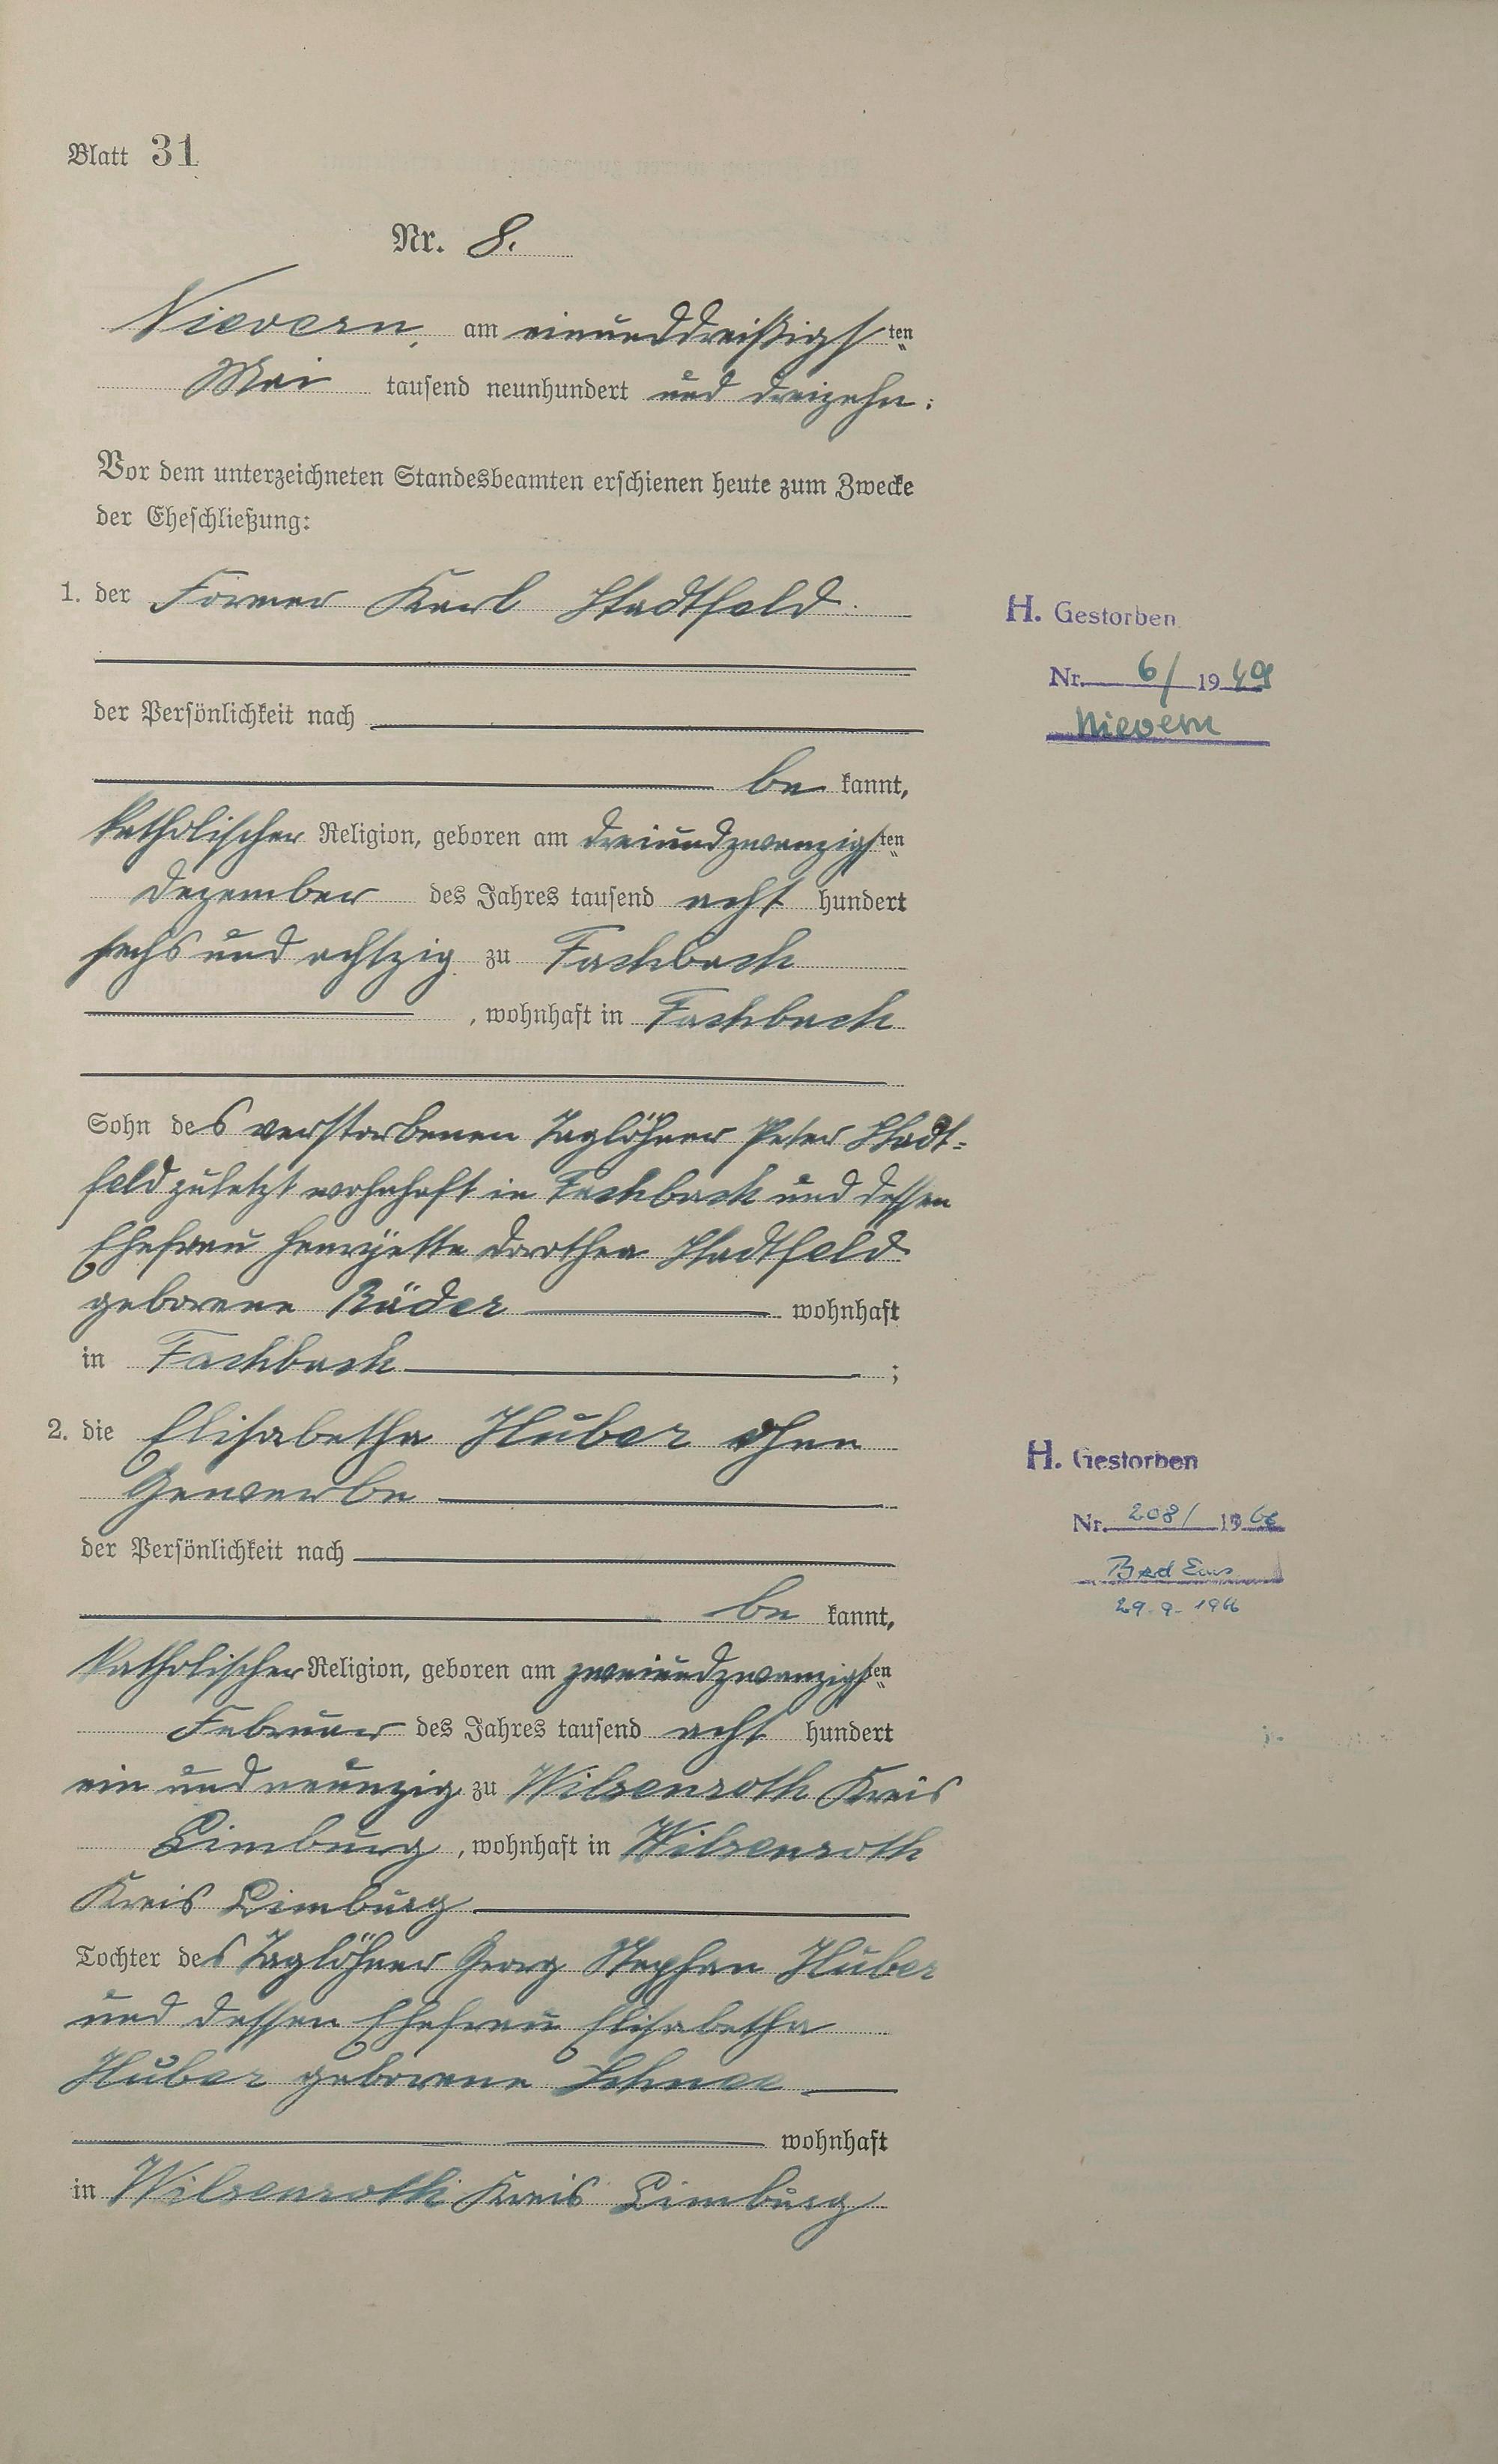 Blatt 31
Nr. 8.
Nievern, am einunddreißigsten
Mai tausend neunhundert und dreizehn.
Vor dem unterzeichneten Standesbeamten erschienen heute zum Zwecke
der Eheschließung:
1. der Former Karl Stadtfeld
H. Gestorben
Nr. 6/ 1949
Nievern
der Persönlichkeit nach
be kannt,
katholischer Religion, geboren am dreiundzwanzigsten
Dezember des Jahres tausend acht hundert
sechs und achtzig zu Fachbach
, wohnhaft in Fachbach
Sohn des verstorbenen Taglöhner Peter Stadt=
feld zuletzt wohnhaft in Fachbach und dessen
Ehefrau Henryette Dorothea Stadtfeld
geborene Räder wohnhaft
in Fachbach ;
2. die Elisabetha Huber ohne
Gewerbe
H. Gestorben
Nr. 208/ 1966
Bad Ems
29.9.1966
der Persönlichkeit nach
be kannt,
katholischer Religion, geboren am zweiundzwanzigsten
Februar des Jahres tausend acht hundert
ein und neunzig zu Wilsenroth Kreis
Limburg, wohnhaft in Wilsenroth
Kreis Limburg
Tochter des Taglöhner Georg Stephan Huber
und dessen Ehefrau Elisabetha
Huber geborene Schnee
wohnhaft
in Wilsenroth Kreis Limburg